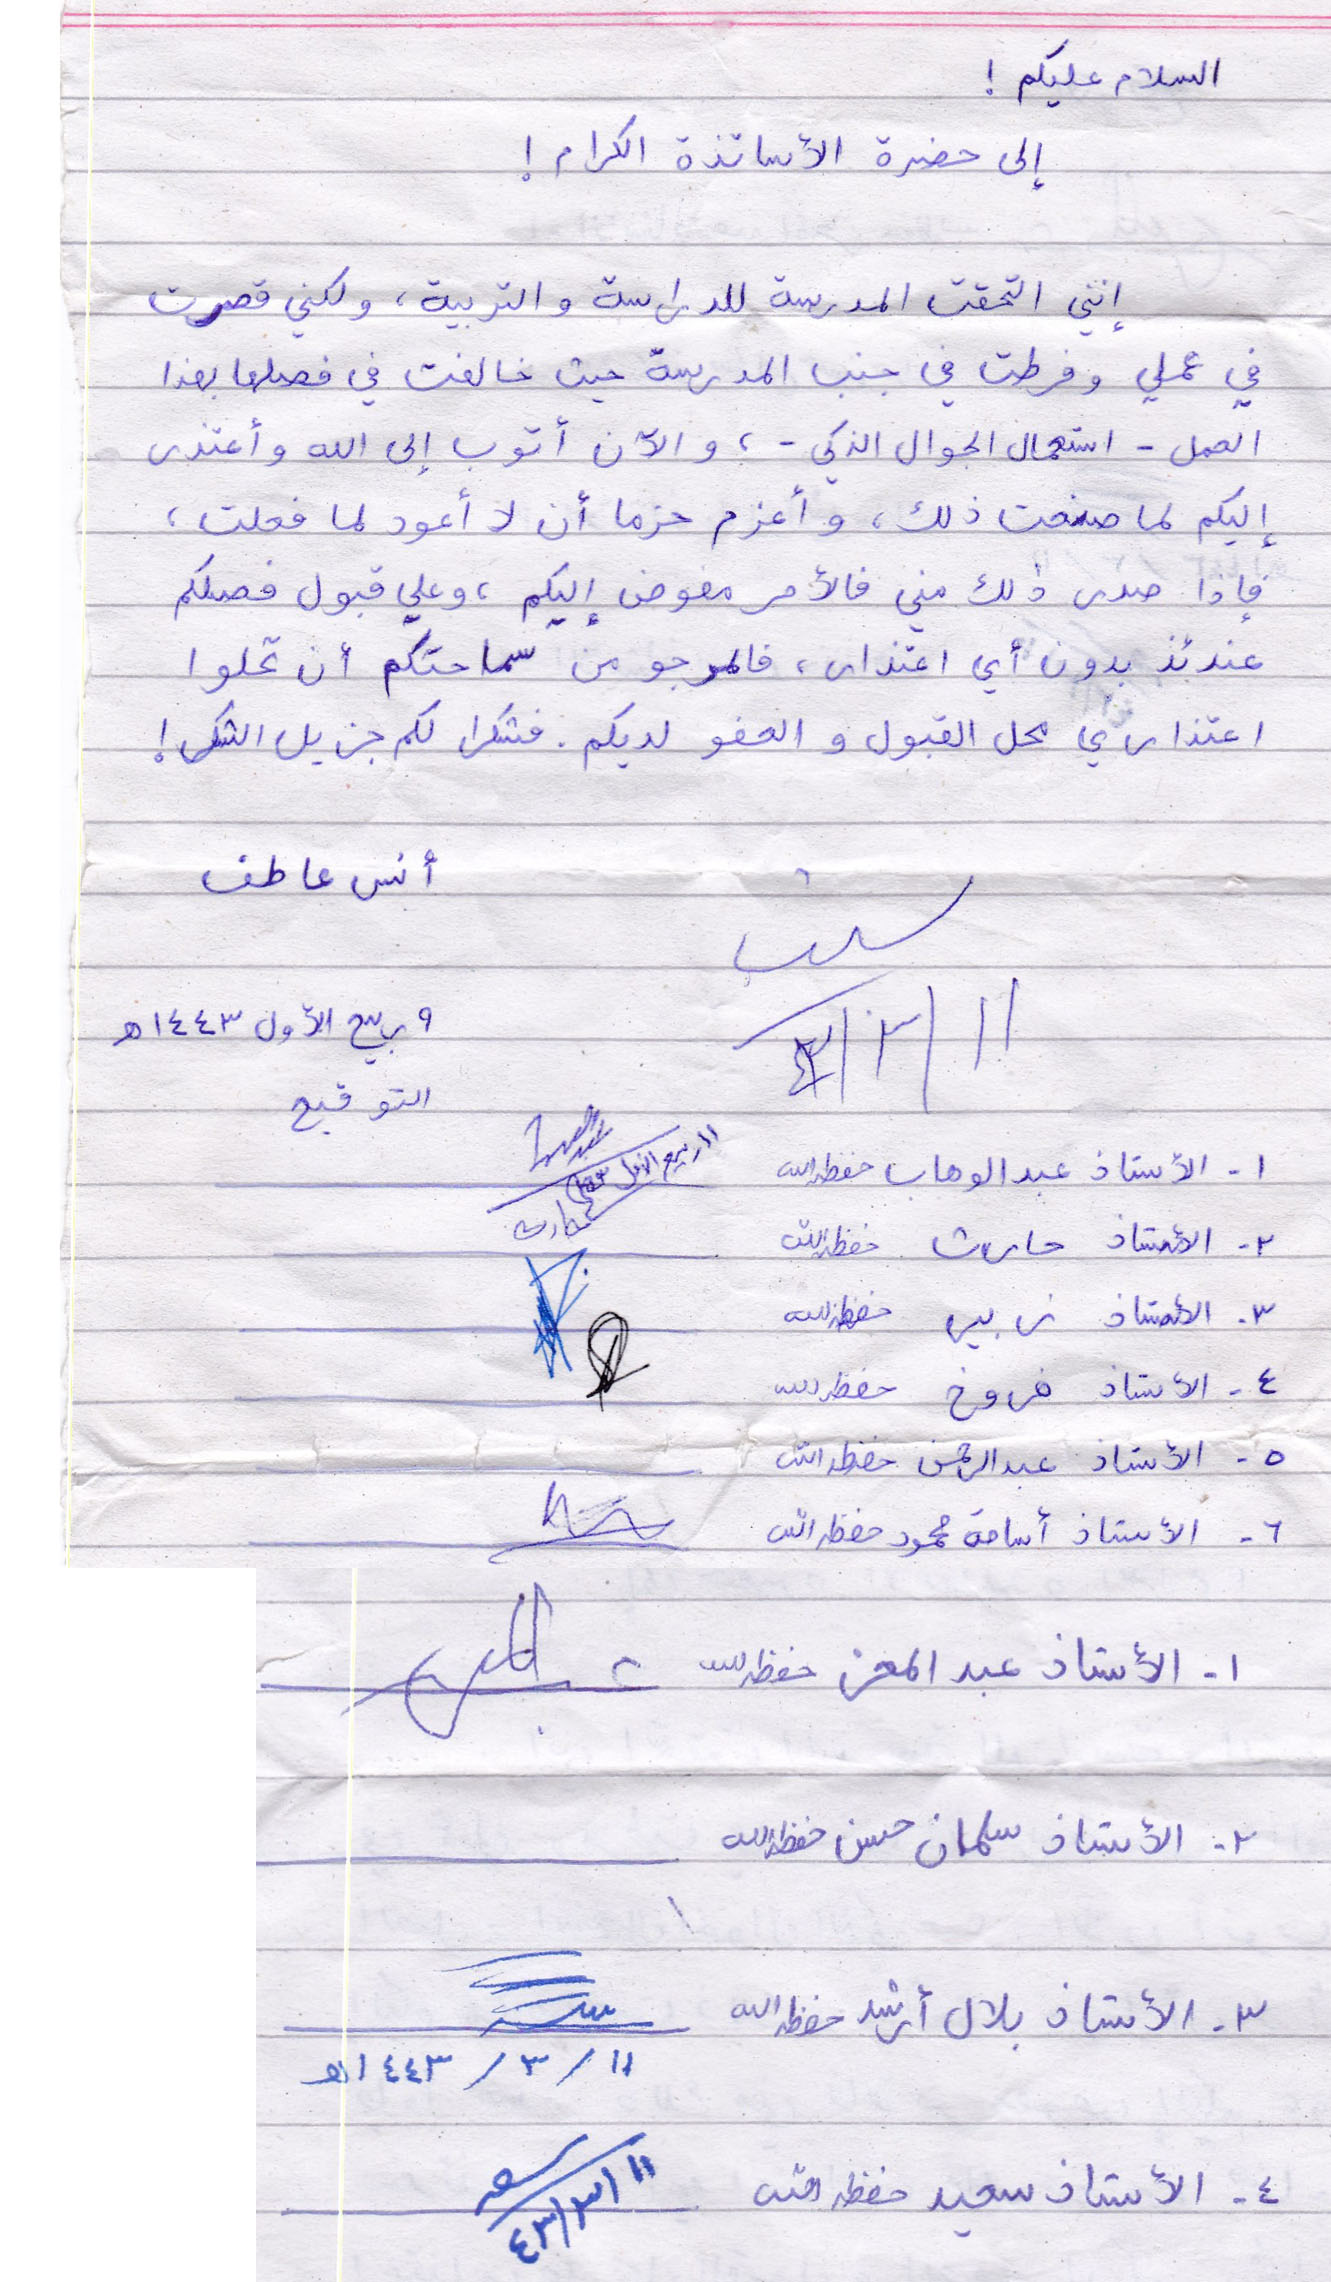 السلام عليكم !
إلى حضرة الأساتذة الكرام !
إنني التحقت المدرسة للدراسة والتربية ، ولكني قصرت
في عملي وفرطت في جنب المدرسة حيث خالفت في فصلها بهذا
العمل - استعمال الجوال الذكي - ، والآن أتوب إلى الله وأعتذر
إليكم لما صنعت ذلك ، وأعزم حزما أن لا أعود لما فعلت ،
فإذا صدر ذلك مني فالأمر مفوض إليكم ، وعلي قبول فصلكم
عندئذ بدون أي اعتذار ، فالمرجو من سماحتكم أن تحلوا
اعتذاري محل القبول و العفو لديكم . فشكرا لكم جزيل الشكر !
أنس عاطف
١١/٣/٤٣
٩ ربيع الأول ١٤٤٣ه
التوقيع
١١ ربيع الأول
١- الأستاذ عبد الوهاب حفظه الله
٢- الأستاذ حارث حفظه الله
٣- الأستاذ زبير حفظه الله
٤- الأستاذ فروخ حفظه الله
٥- الأستاذ عبدالرحمن حفظه الله
٦- الأستاذ أسامة محمود حفظه الله
١- الأستاذ عبد المعز حفظه الله
٢- الأستاذ سلمان حسن حفظه الله
٣- الأستاذ بلال أرشد حفظه الله
١١ / ٣ / ١٤٤٣ه
٤- الأستاذ سعيد حفظه الله
١١/٣/٤٣